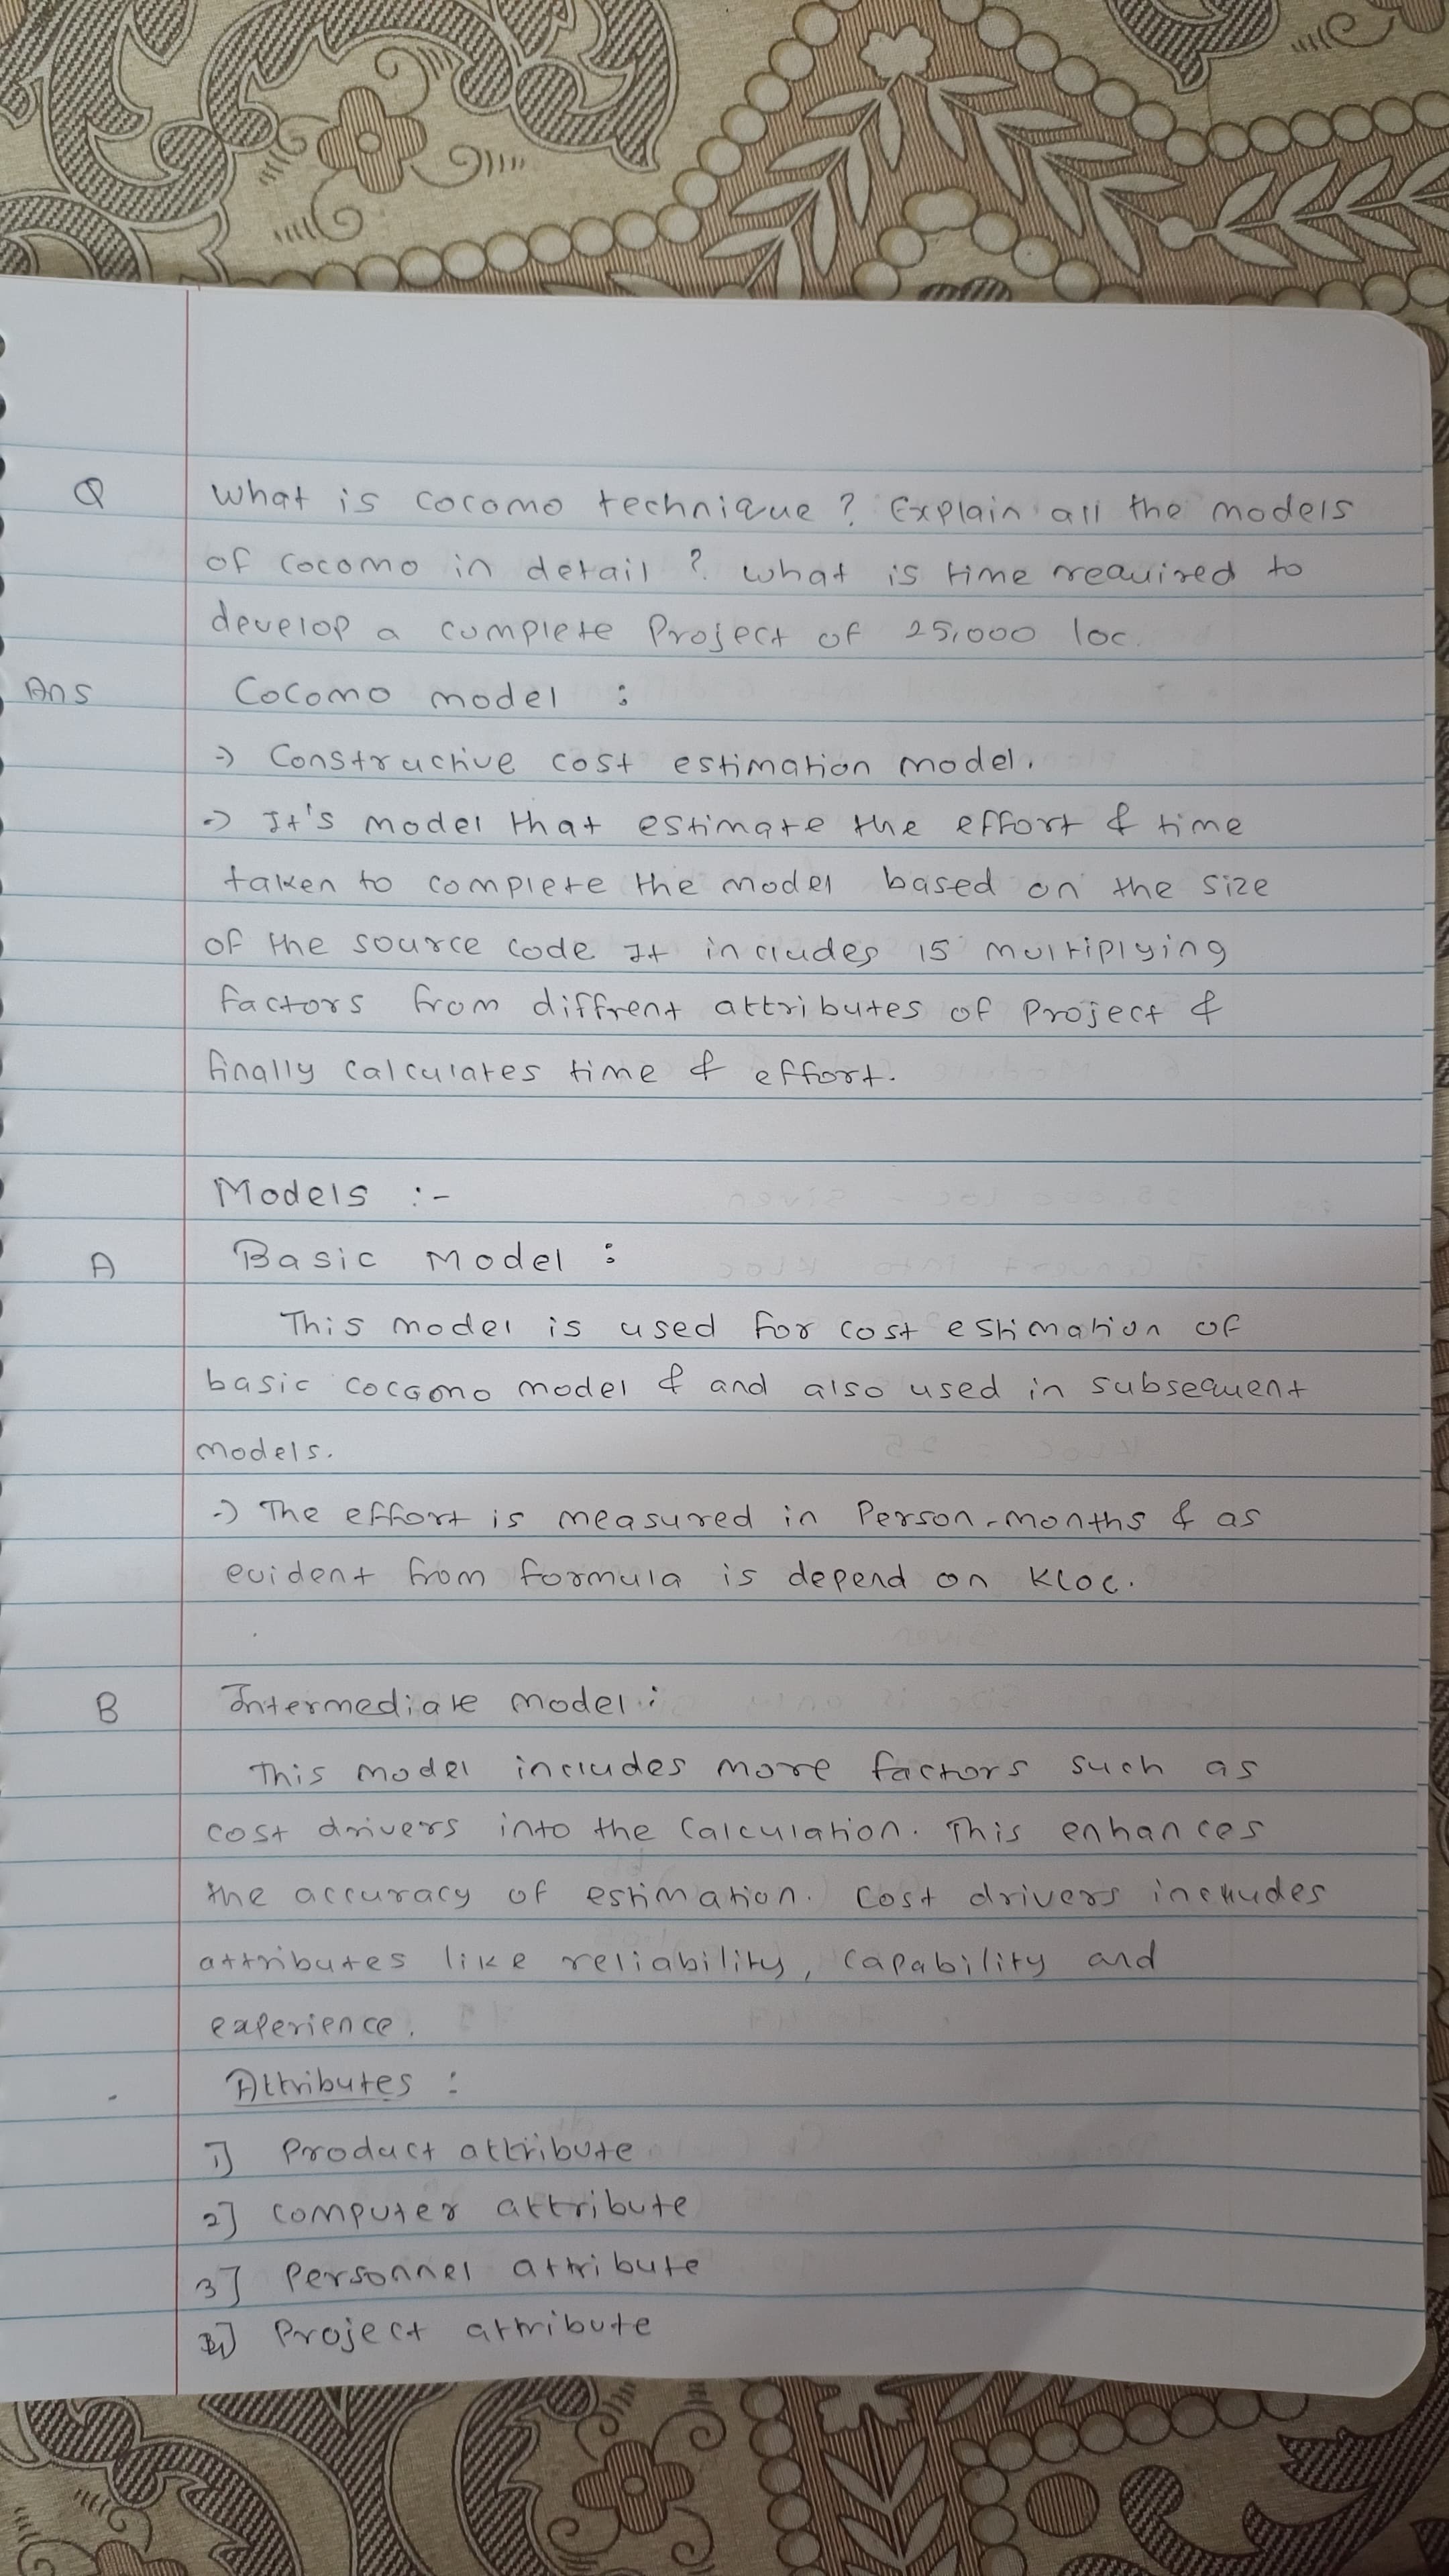 Q What is cocomo technique ? Explain all the models
of cocomo in detail ? what is time required to
develop a complete Project of 25,000 loc.
Ans Cocomo model :
→ Constructive cost estimation model.
→ It's model that estimate the effort & time
taken to complete the model based on the size
of the source code It includes 15 multiplying
factors from diffrent attributes of Project &
finally calculates time & effort.
Models :-
A Basic Model :
This model is used for cost estimation of
basic cocomo model & and also used in subsequent
models.
→ The effort is measured in Person-months & as
evident from formula is depend on Kloc.
B Intermediate model :
This model includes more factors such as
cost drivers into the calculation. This enhances
the accuracy of estimation. Cost drivers includes
attributes like reliability, capability and
experience.
Attributes :
1] Product attribute
2] computer attribute
3] Personnel attribute
4] Project attribute